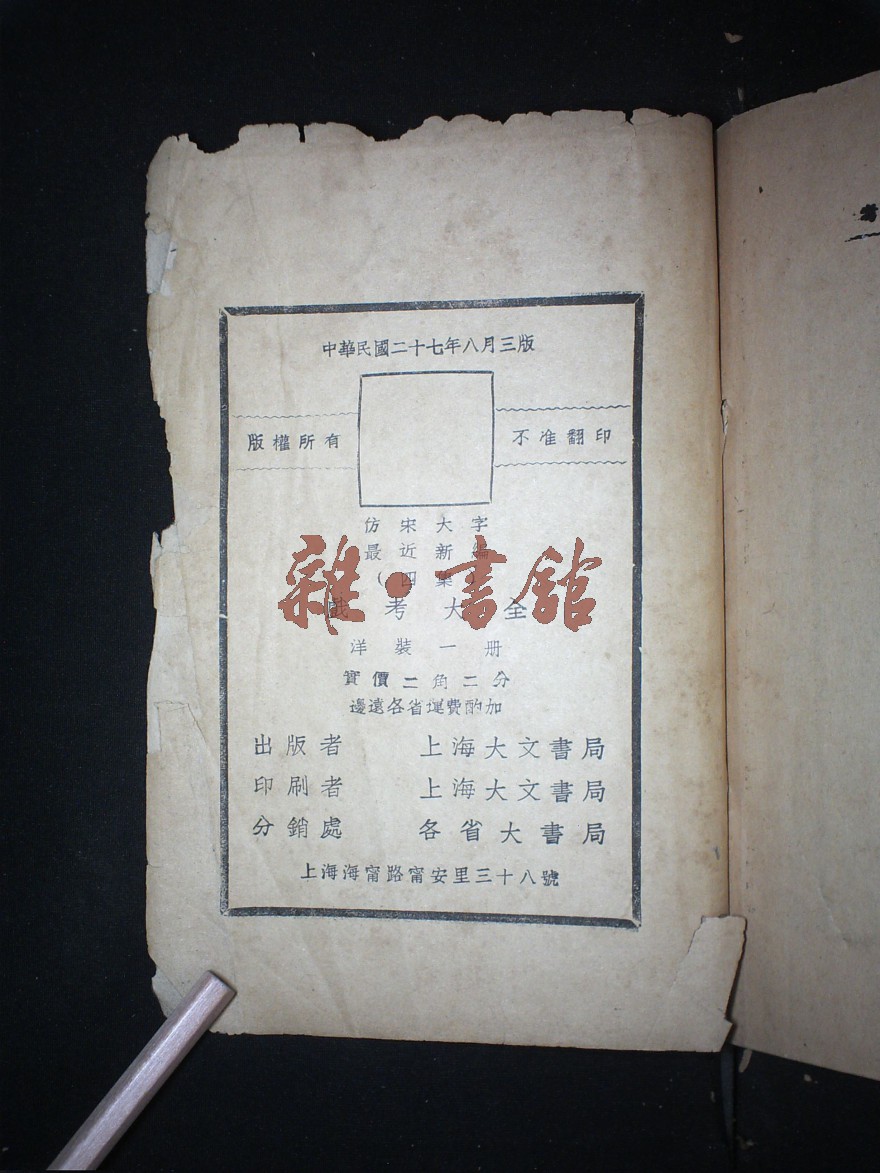 中華民國二十七年八月三版
版權所有
不准翻印
仿宋大字
最近新編
(四集)
戲考大全
洋裝一册
實價二角二分
邊遠各省運費酌加
出版者 上海大文書局
印刷者 上海大文書局
分銷處 各省大書局
上海海甯路甯安里三十八號
雜·書館
考